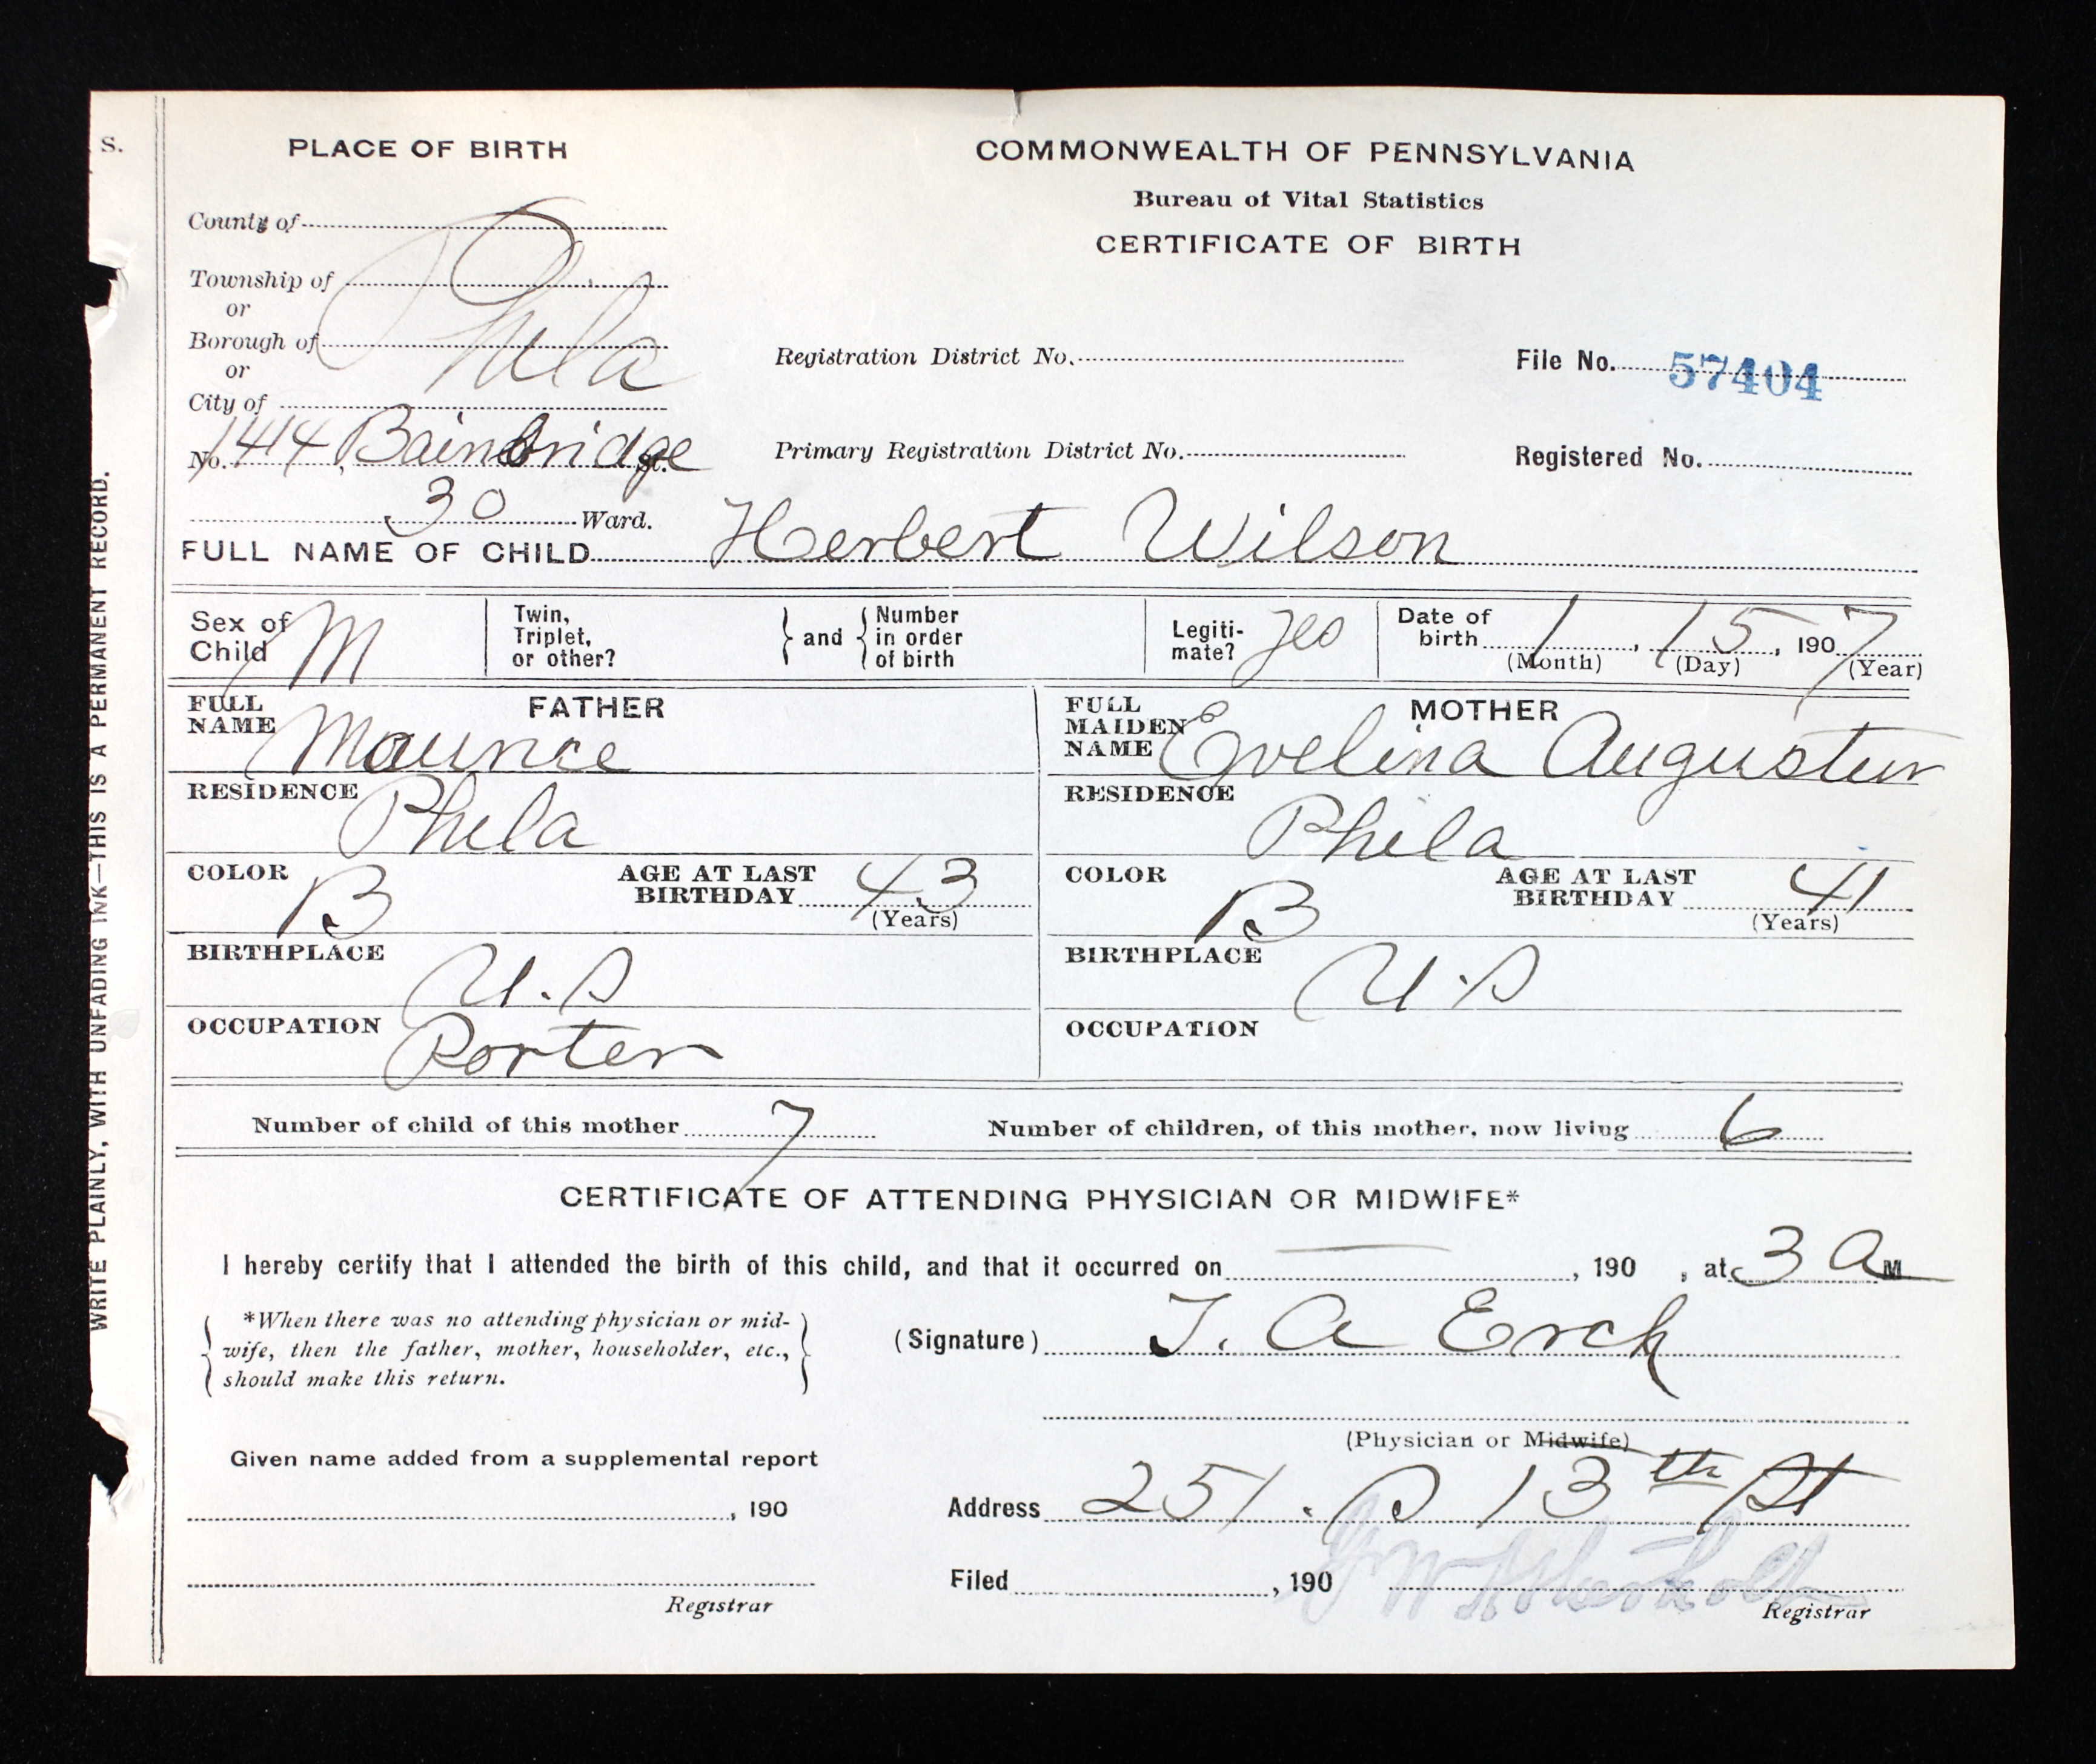 S.
PLACE OF BIRTH
COMMONWEALTH OF PENNSYLVANIA
Bureau of Vital Statistics
CERTIFICATE OF BIRTH
County of
Township of
or
Borough of
or
City of
Phila
Registration District No.
File No. 57404
No. 1414 Bainbridge St.
Primary Registration District No.
Registered No.
30 Ward.
FULL NAME OF CHILD Herbert Wilson
Sex of Child M
Twin, Triplet, or other?
and
Number in order of birth
Legiti-mate? yes
Date of birth 1, 15, 1907
(Month) (Day) (Year)
FATHER
FULL NAME Maurice
RESIDENCE Phila
COLOR B
AGE AT LAST BIRTHDAY 43
(Years)
BIRTHPLACE U.S
OCCUPATION Porter
MOTHER
FULL MAIDEN NAME Evelina
RESIDENCE Phila
COLOR B
AGE AT LAST BIRTHDAY 41
(Years)
BIRTHPLACE U.S
OCCUPATION
Number of child of this mother 7
Number of children, of this mother, now living 6
CERTIFICATE OF ATTENDING PHYSICIAN OR MIDWIFE*
I hereby certify that I attended the birth of this child, and that it occurred on , 190 , at 3 A M
*When there was no attending physician or mid-
wife, then the father, mother, householder, etc.,
should make this return.
(Signature) T. A Erck
(Physician or Midwife)
Given name added from a supplemental report
, 190
Address 251. S 13th St
Filed , 190
Registrar
Registrar
WRITE PLAINLY, WITH UNFADING INK—THIS IS A PERMANENT RECORD.